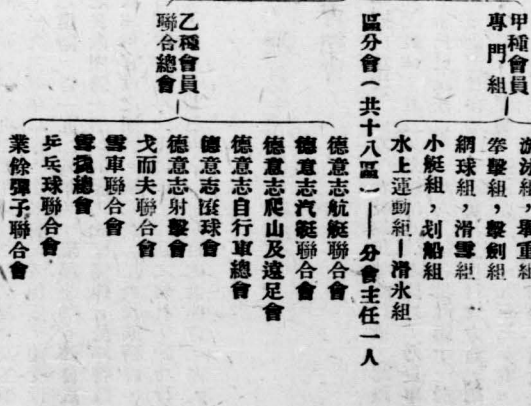 甲種會員
專門組
游泳組，舉重組
拳擊組，擊劍組
網球組，滑雪組
小艇組，划船組
水上運動組—滑氷組
區分會（共十八區）——分會主任一人
乙種會員
聯合總會
德意志航艇聯合會
德意志汽艇聯合會
德意志爬山及遠足會
德意志自行車總會
德意志滾球會
德意志射擊會
戈而夫聯合會
雪車聯合會
總會
乒乓球聯合會
業餘彈子聯合會